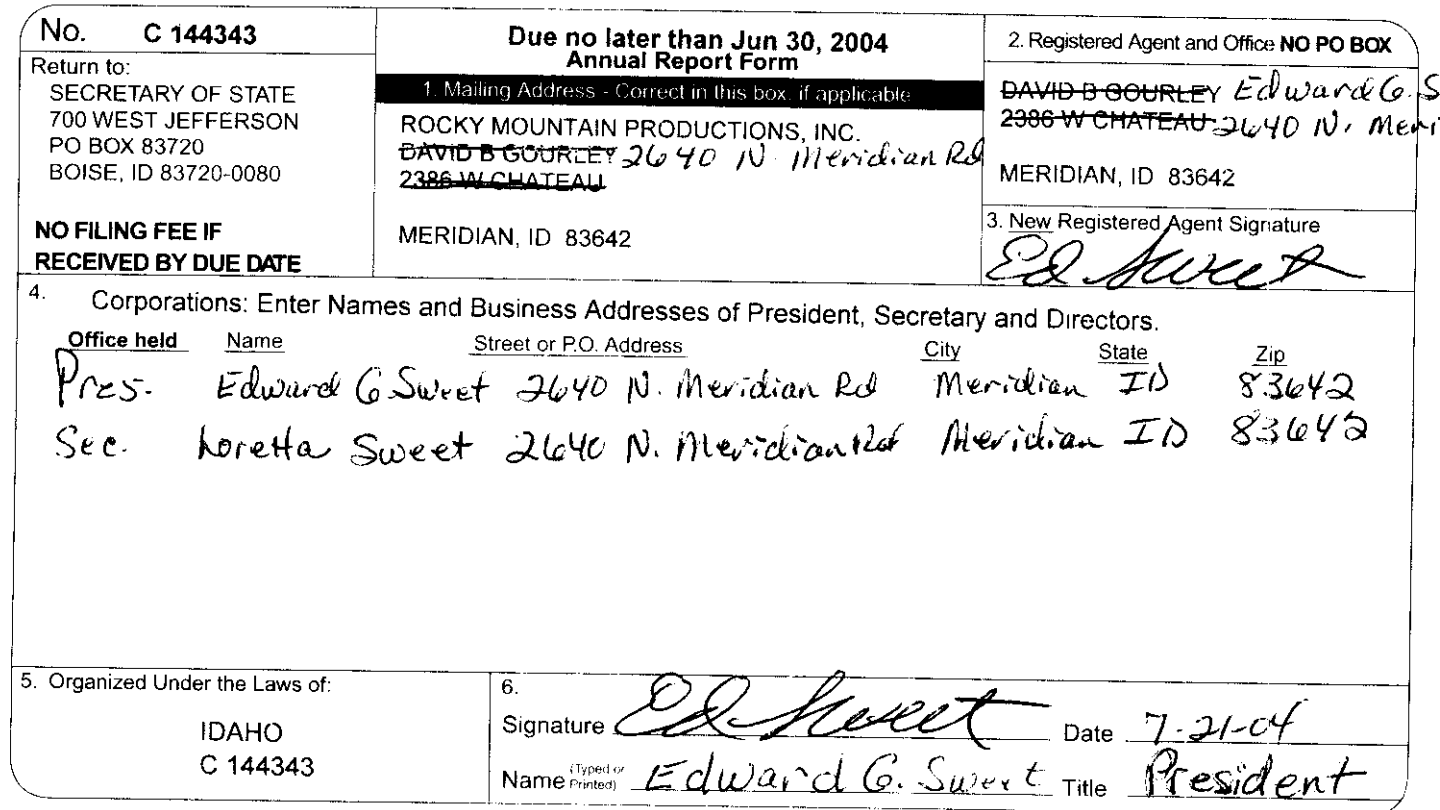 No. C 144343
Return to:
SECRETARY OF STATE
700 WEST JEFFERSON
PO BOX 83720
BOISE, ID 83720-0080
NO FILING FEE IF
RECEIVED BY DUE DATE
Due no later than Jun 30, 2004
Annual Report Form
1. Mailing Address - Correct in this box, if applicable
ROCKY MOUNTAIN PRODUCTIONS, INC.
DAVID B GOURLEY 2640 N Meridian Rd
2386 W CHATEAU
MERIDIAN, ID 83642
2. Registered Agent and Office NO PO BOX
DAVID B GOURLEY Edward G. S
2386 W CHATEAU 2640 N. Meri
MERIDIAN, ID 83642
3. New Registered Agent Signature
Ed Sweet
4. Corporations: Enter Names and Business Addresses of President, Secretary and Directors.
Office held Name Street or P.O. Address City State Zip
Pres. Edward G Sweet 2640 N. Meridian Rd Meridian ID 83642
Sec. Loretta Sweet 2640 N. Meridian Rd Meridian ID 83642
5. Organized Under the Laws of:
IDAHO
C 144343
6.
Signature Ed Sweet Date 7-21-04
Name (Typed or Printed) Edward G. Sweet Title President